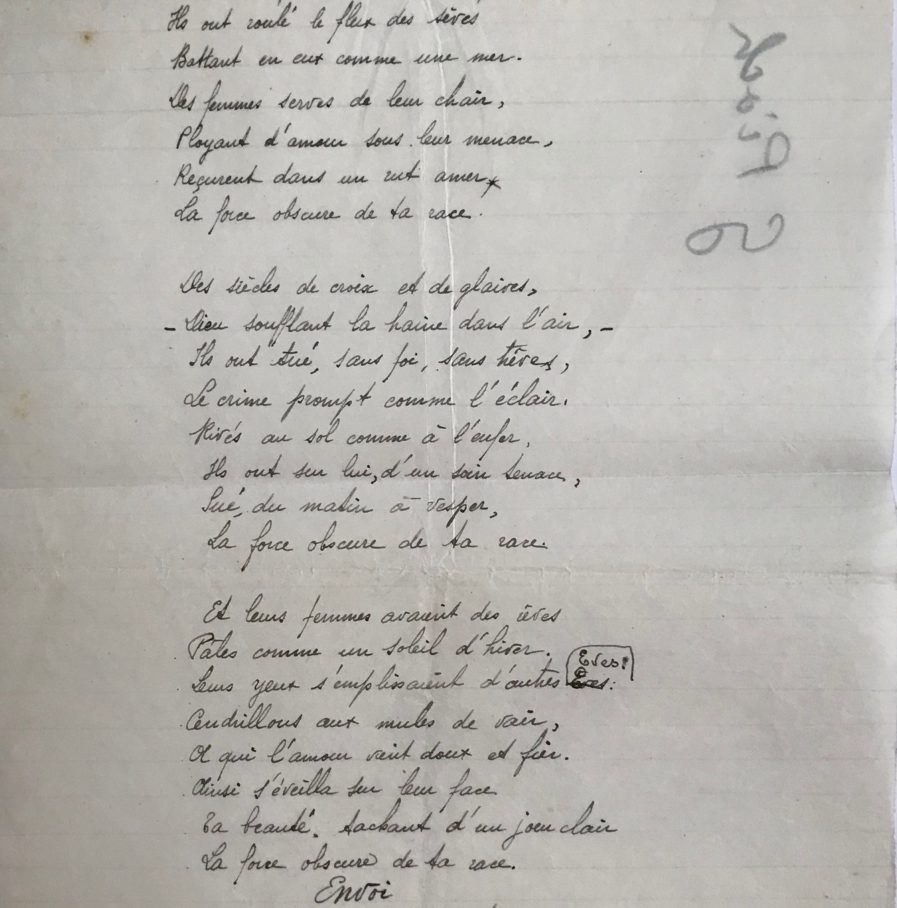 Ils ont roulé le flux des sèves
Battant en eux comme une mer.
Des femmes serves de leur chair,
Ployant d'amour sous leur menace,
Reçurent dans un rut amer
La force obscure de ta race.
Des siècles de croix et de glaives,
– Dieu soufflant la haine dans l'air, –
Ils ont tué, sans foi, sans trêves,
Le crime prompt comme l'éclair.
Rivés au sol comme à l'enfer,
Ils ont sur lui, d'un soin tenace,
Sué, du matin à vesper,
La force obscure de ta race.
Et leurs femmes avaient des rêves
Pâles comme un soleil d'hiver.
Leurs yeux s'emplissaient d'autres Eves:
Eves:
Cendrillons aux mules de vair,
A qui l'amour vint doux et fier.
Ainsi s'éveilla sur leur face
Ta beauté, tachant d'un jour clair
La force obscure de ta race.
Envoi